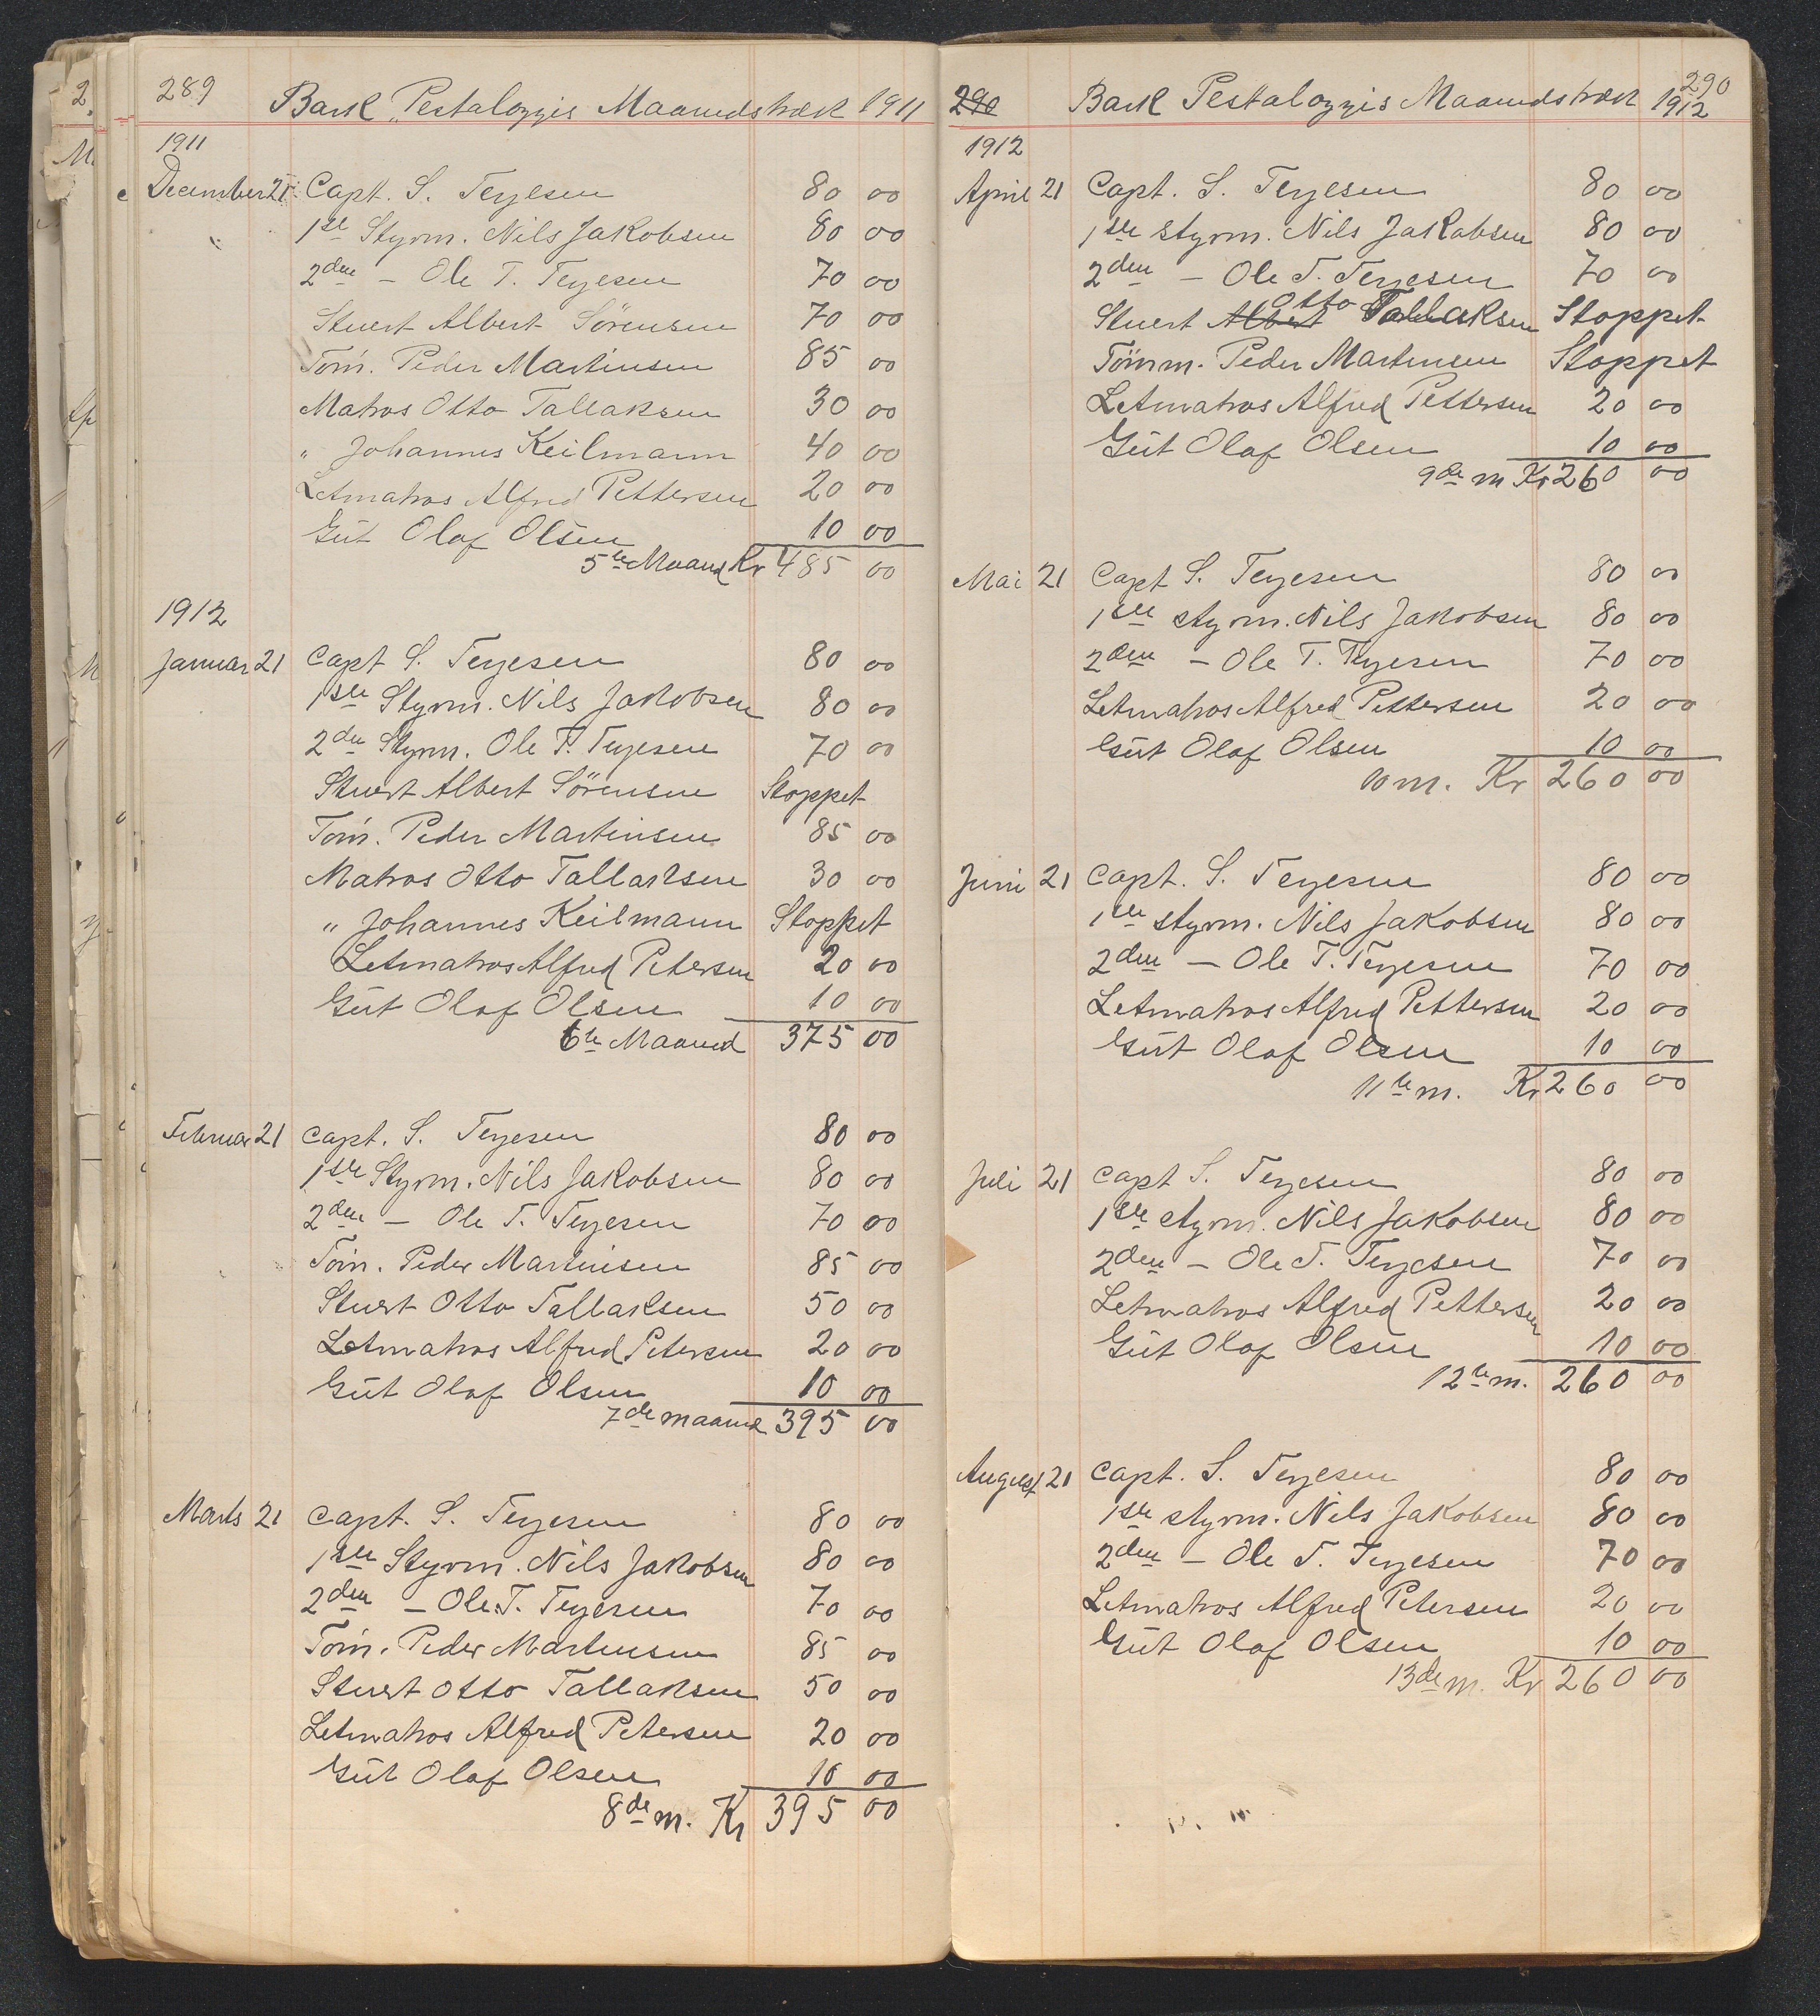 289 Bark "Pestalozzis Maanedstræk 1911
1911
December 21 Capt. S. Terjesen 80 00
1ste Styrm. Nils Jakobsen 80 00
2den – Ole T. Terjesen 70 00
Stuert Albert Sörensen 70 00
Töm. Peder Martinsen 85 00
Matros Otto Tallaksen 30 00
" Johannes Keilmann 40 00
Letmatros Alfred Pettersen 20 00
Gut Olaf Olsen 10 00
5te Maaned Kr 485 00
1912
Januar 21 Capt S. Terjesen 80 00
1ste Styrm. Nils Jakobsen 80 00
2den Styrm. Ole T. Terjesen 70 00
Stuert Albert Sörensen Stoppet
Töm. Peder Martinsen 85 00
Matros Otto Tallaksen 30 00
" Johannes Keilmann Stoppet
Letmatros Alfred Petersen 20 00
Gut Olaf Olsen 10 00
6te Maaned 375 00
Februar 21 Capt. S. Terjesen 80 00
1ste Styrm. Nils Jakobsen 80 00
2den – Ole T. Terjesen 70 00
Töm. Peder Martinsen 85 00
Stuert Otto Tallaksen 50 00
Letmatros Alfred Petersen 20 00
Gut Olaf Olsen 10 00
7de maaned 395 00
Marts 21 Capt. S. Terjesen 80 00
1ste Styrm. Nils Jakobsen 80 00
2den – Ole T. Terjesen 70 00
Töm. Peder Martinsen 85 00
Stuert Otto Tallaksen 50 00
Letmatros Alfred Petersen 20 00
Gut Olaf Olsen 10 00
8de m. Kr 395 00
290 Bark Pestalozzis Maanedstræk 1912 290
1912
April 21 Capt. S. Terjesen 80 00
1ste Styrm. Nils Jakobsen 80 00
2den – Ole T. Terjesen 70 00
Stuert Albert Otto Tallaksen Stoppet
Tömm. Peder Martinsen Stoppet
Letmatros Alfred Pettersen 20 00
Gut Olaf Olsen 10 00
9de m Kr 260 00
Mai 21 Capt S. Terjesen 80 00
1ste styrm. Nils Jakobsen 80 00
2den – Ole T. Terjesen 70 00
Letmatros Alfred Pettersen 20 00
Gut Olaf Olsen 10 00
10 m. Kr 260 00
Juni 21 Capt. S. Terjesen 80 00
1ste styrm. Nils Jakobsen 80 00
2den – Ole T. Terjesen 70 00
Letmatros Alfred Pettersen 20 00
Gut Olaf Olsen 10 00
11te m. Kr 260 00
Juli 21 Capt S. Terjesen 80 00
1ste styrm. Nils Jakobsen 80 00
2den – Ole T. Terjesen 70 00
Letmatros Alfred Pettersen 20 00
Gut Olaf Olsen 10 00
12te m. 260 00
August 21 Capt. S. Terjesen 80 00
1ste styrm. Nils Jakobsen 80 00
2den – Ole T. Terjesen 70 00
Letmatros Alfred Petersen 20 00
Gut Olaf Olsen 10 00
13de m. Kr 260 00